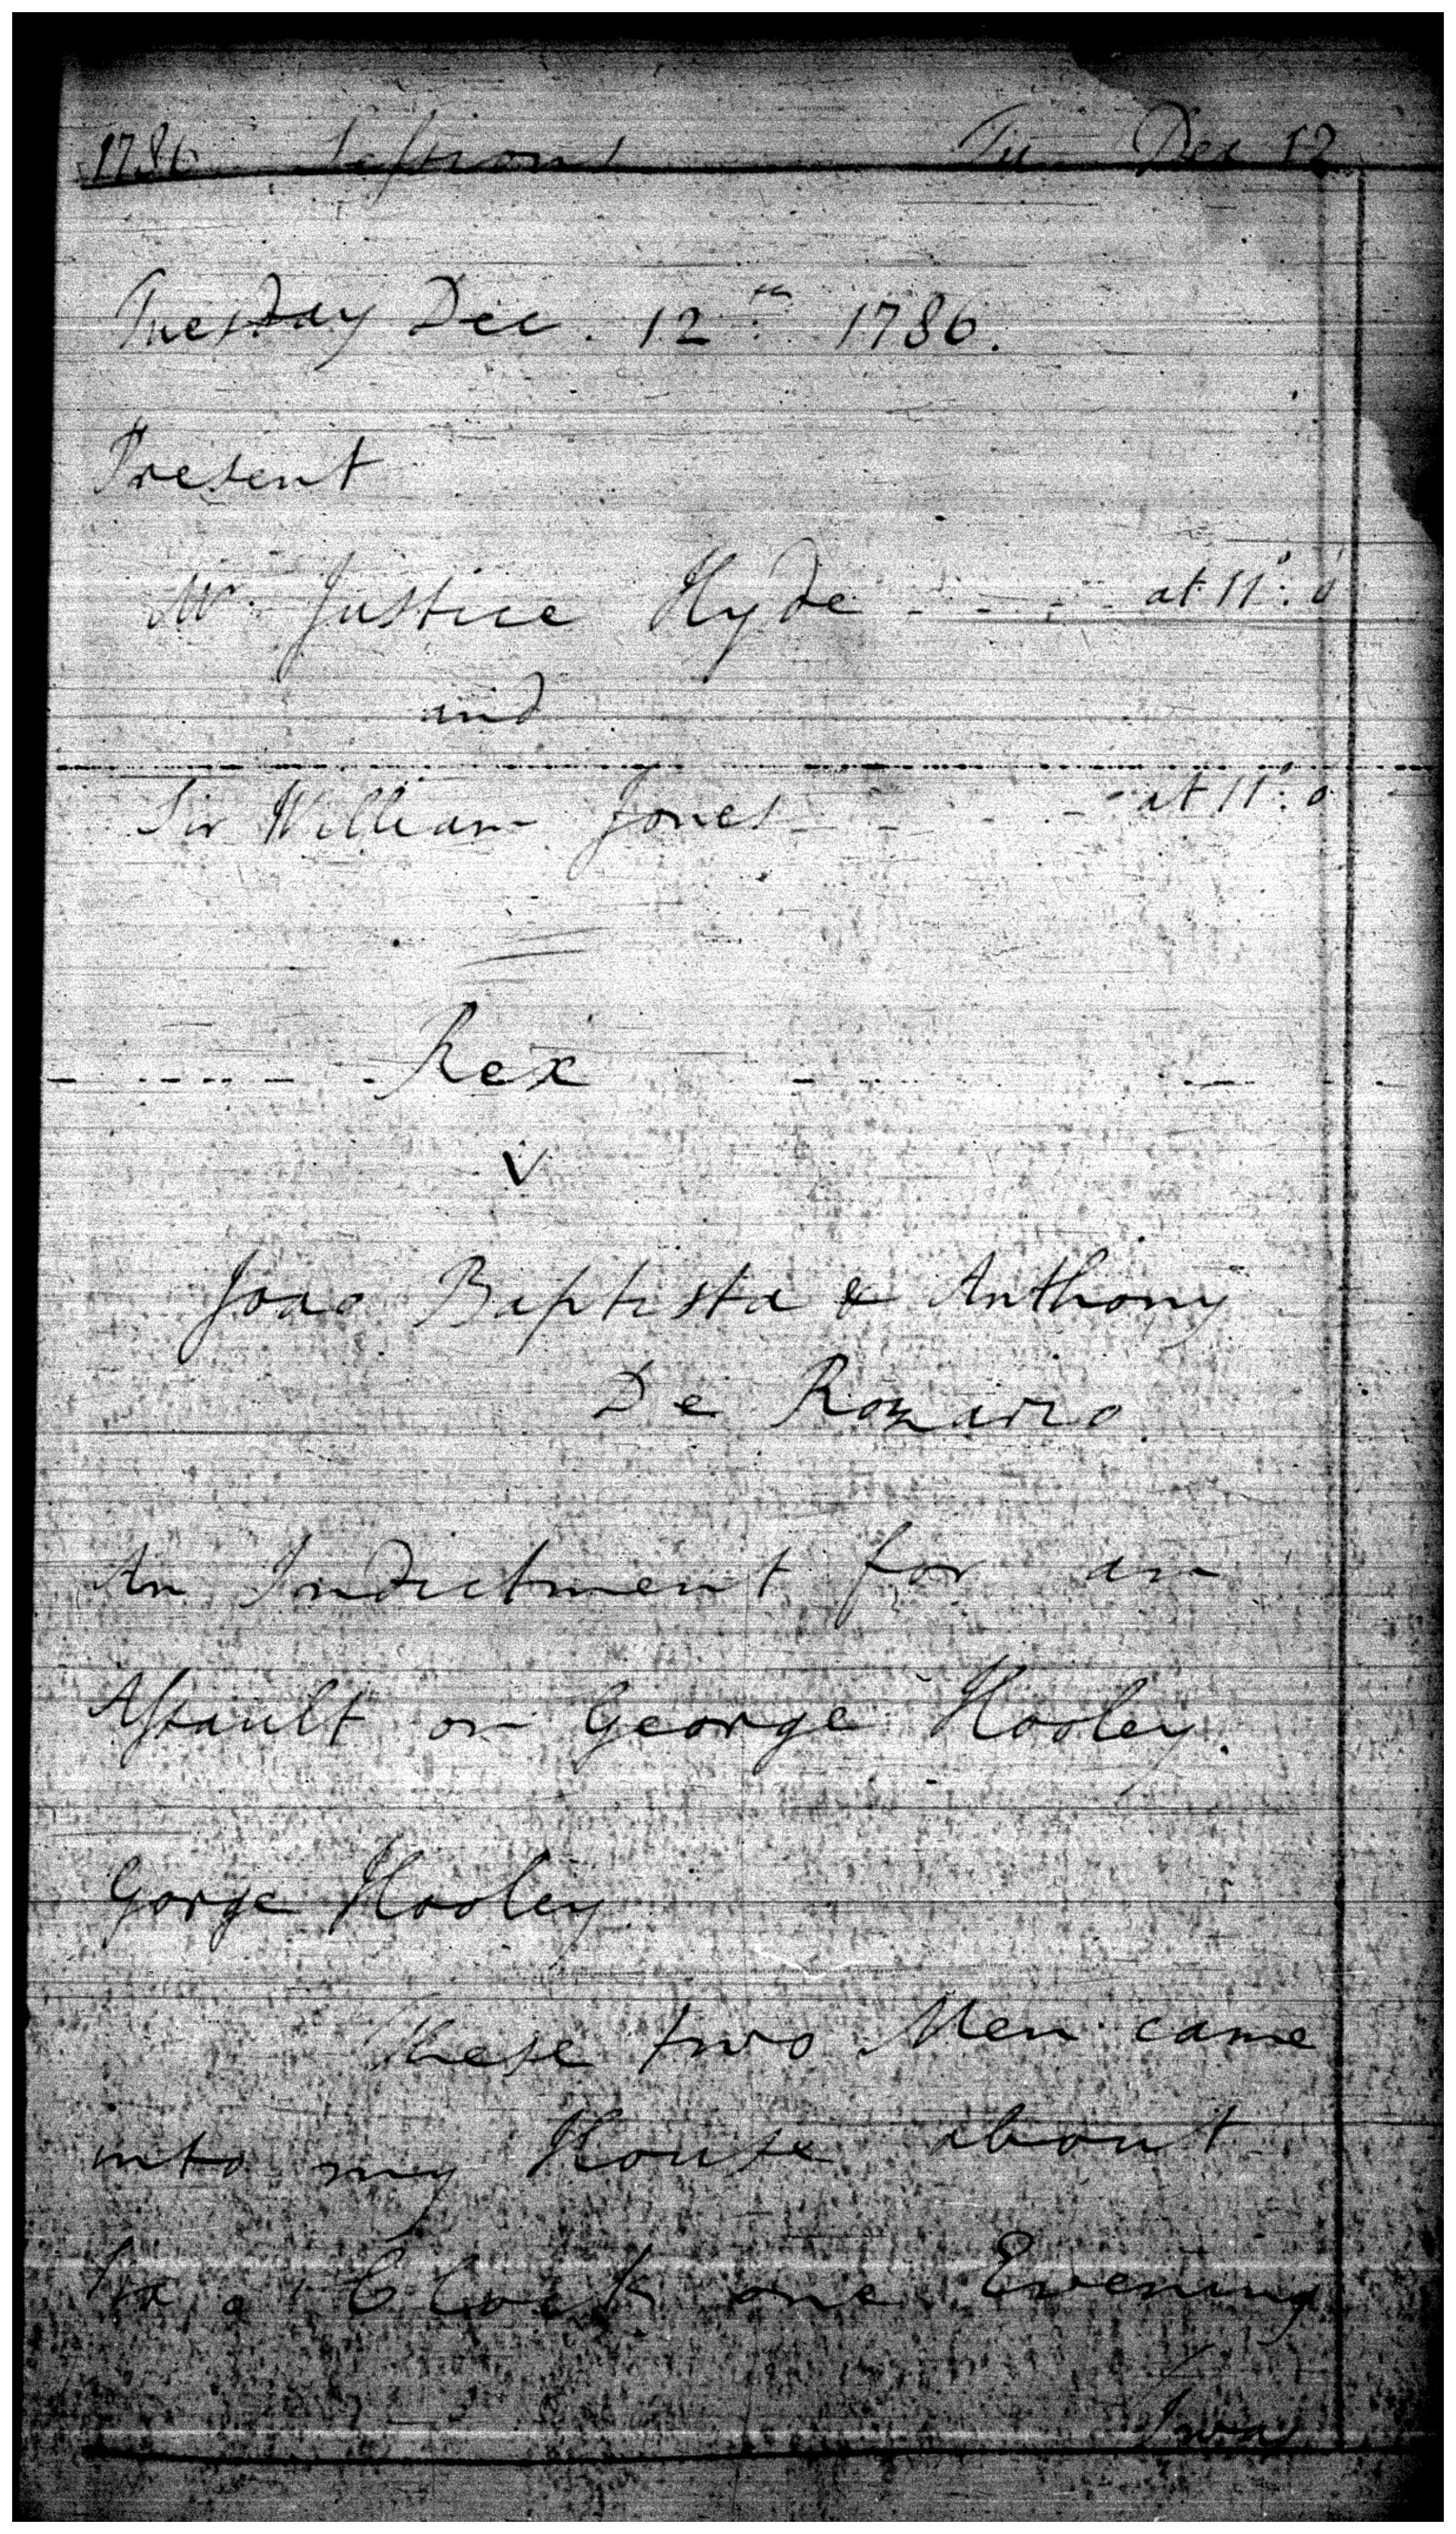 1786 Sessions Tu Dec 12
Tuesday Dec. 12th 1786.
Present
Mr. Justice Hyde - - - - at 11°: 0'
and
Sir William Jones - - - - at 11°: 0'
Rex
v
Joao Baptista & Anthony
De Rozario.
An Indictment for an
Assault on George Hooley.
Gorge Hooley
These two Men came
into my House about
Six o'Clock one Evening
I was